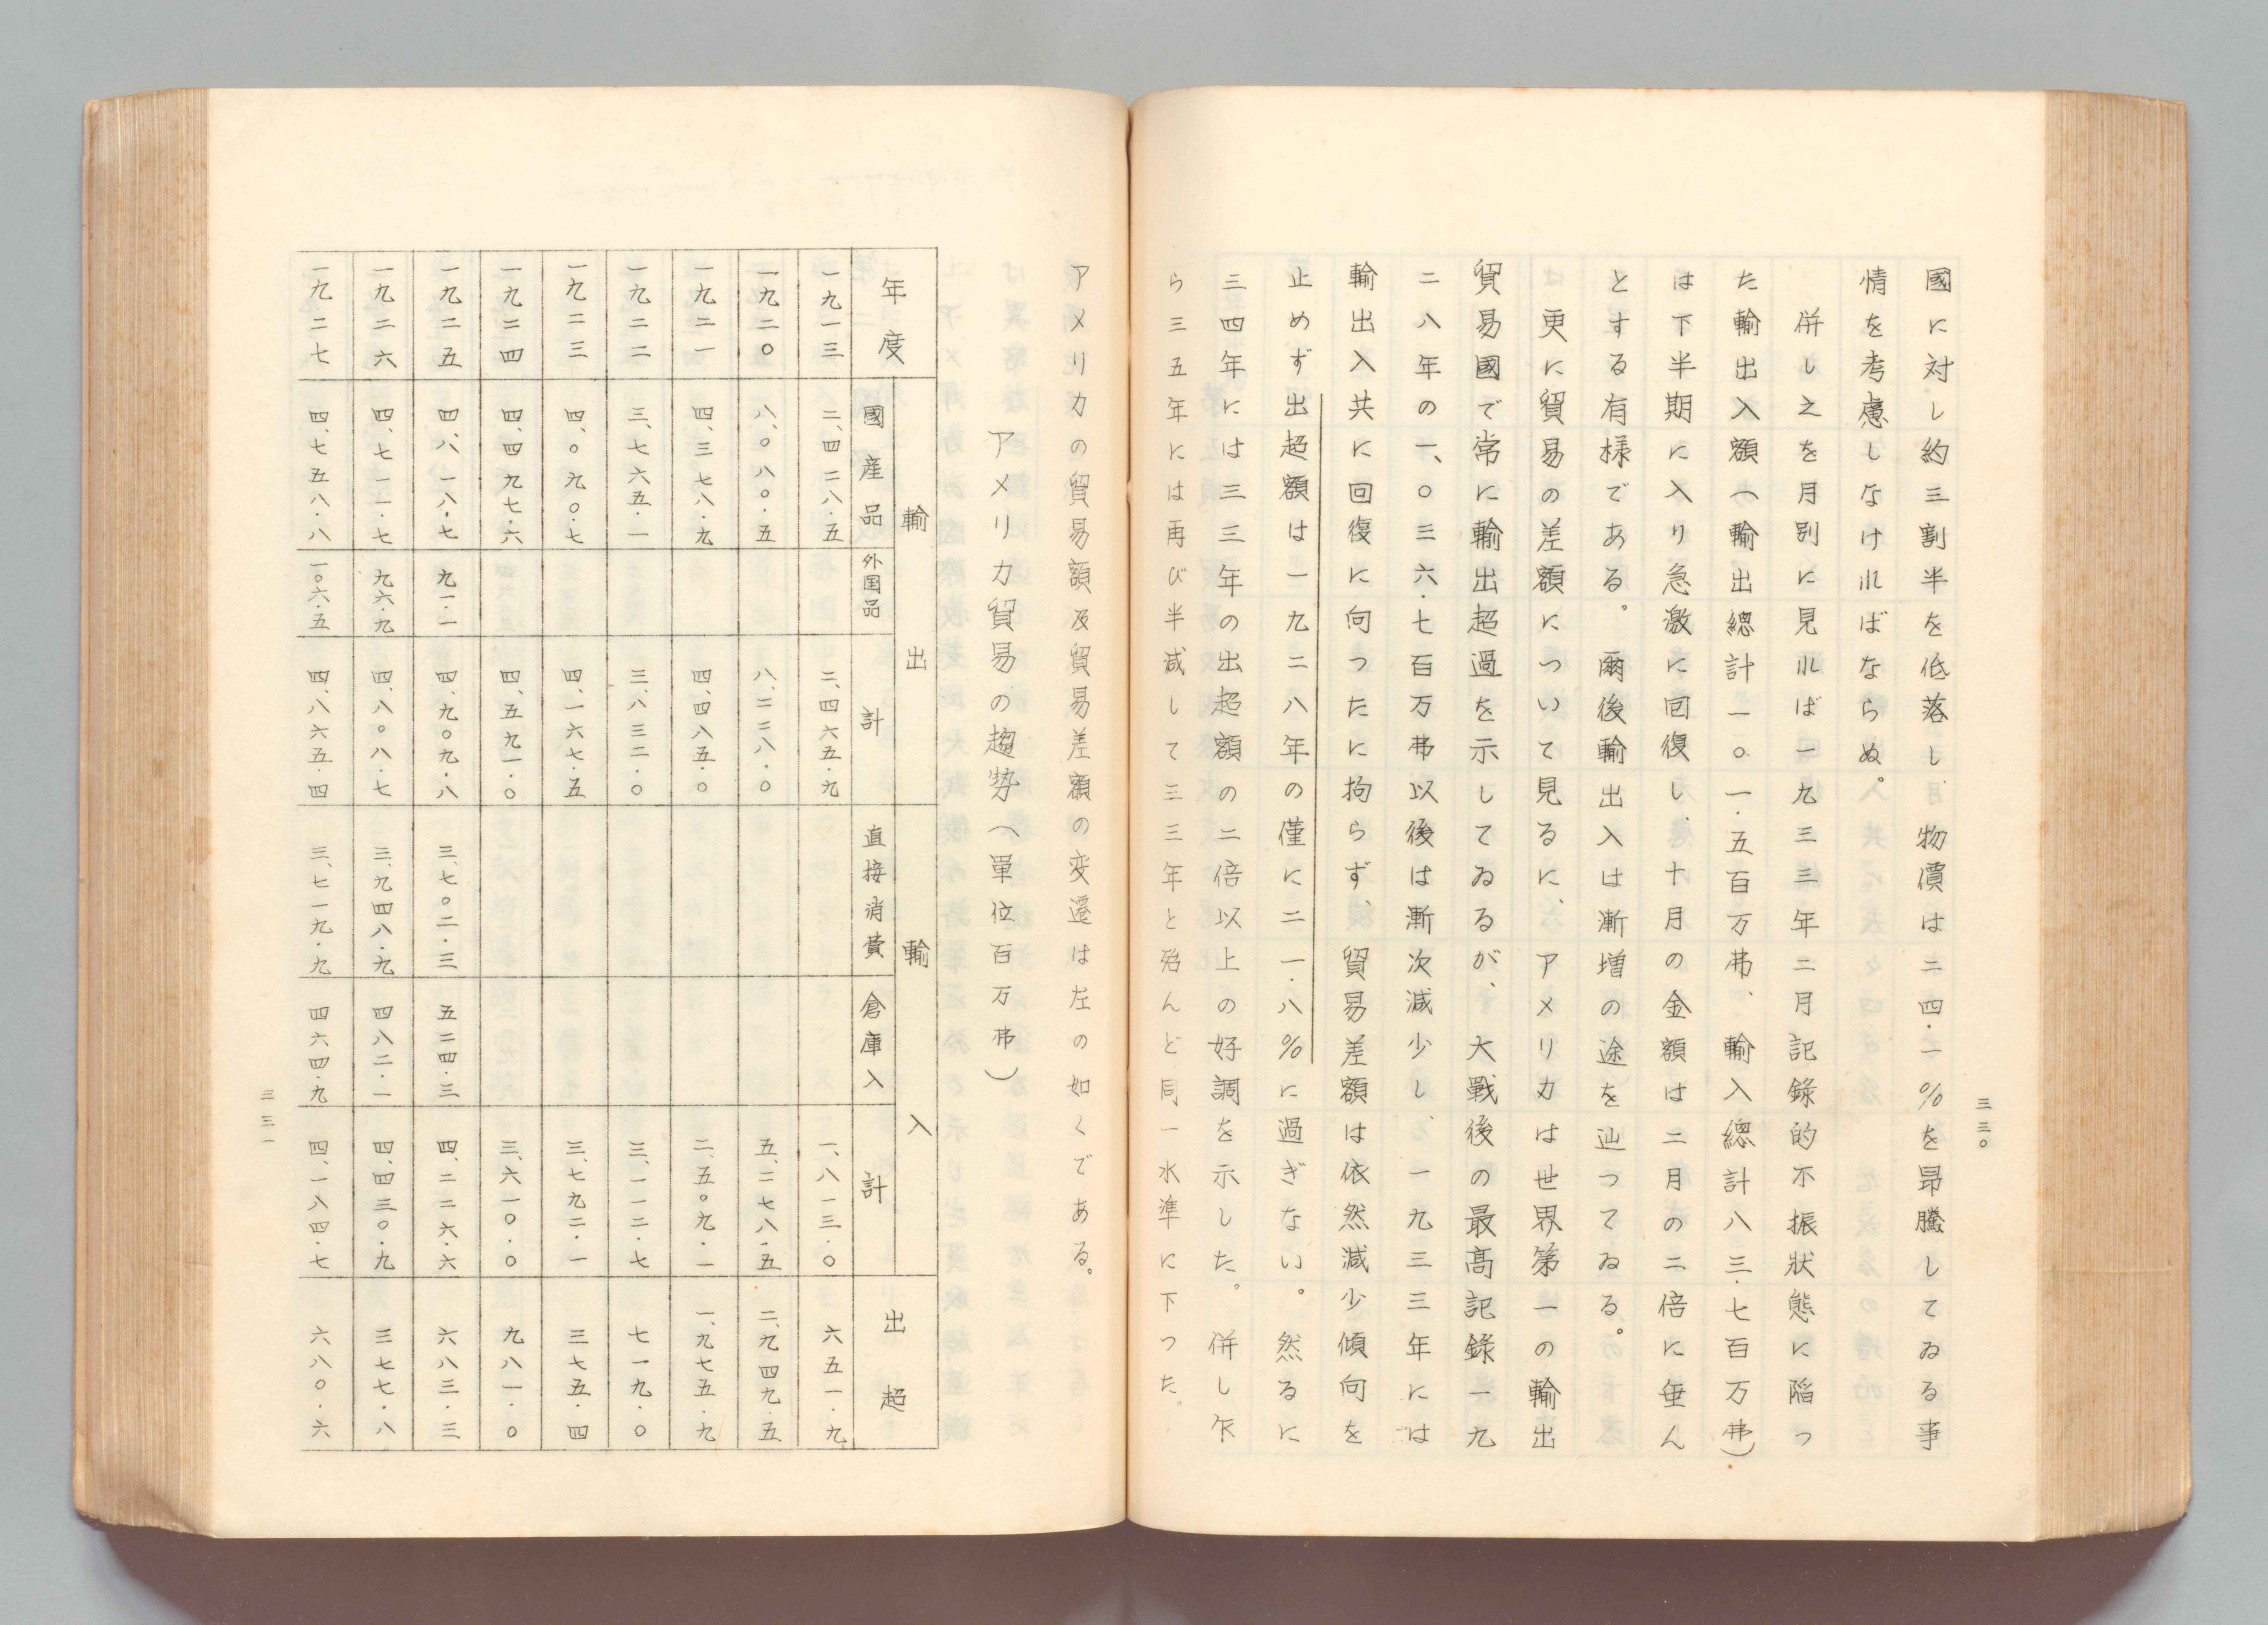 三三〇
國に対し約三割半を低落し、物價は二四・一％を昻騰してゐる事
情を考慮しなければならぬ。
併し之を月別に見れば一九三三年二月記錄的不振狀態に陷つ
た輸出入額（輸出總計一〇一・五百万弗、輸入總計八三・七百万弗）
は下半期に入り急激に回復し、十月の金額は二月の二倍に垂ん
とする有様である。爾後輸出入は漸増の途を辿つてゐる。
更に貿易の差額について見るに、アメリカは世界第一の輸出
貿易國で常に輸出超過を示してゐるが、大戰後の最高記錄一九
二八年の一、〇三六・七百万弗以後は漸次減少し、一九三三年には
輸出入共に回復に向つたに拘らず、貿易差額は依然減少傾向を
止めず出超額は一九二八年の僅に二一・八％に過ぎない。然るに
三四年には三三年の出超額の二倍以上の好調を示した。併し乍
ら三五年には再び半減して三三年と殆んど同一水準に下つた。
アメリカの貿易額及貿易差額の変遷は左の如くである。
アメリカ貿易の趨勢（單位百万弗）
年度 輸出 輸入 出超
國産品 外国品 計 直接消費 倉庫入 計
一九一三 二、四二八・五 二、四六五・九 一、八一三・〇 六五一・九
一九二〇 八、〇八〇・五 八、二二八・〇 五、二七八・五 二、九四九・五
一九二一 四、三七八・九 四、四八五・〇 二、五〇九・一 一、九七五・九
一九二二 三、七六五・一 三、八三二・〇 三、一一二・七 七一九・〇
一九二三 四、〇九〇・七 四、一六七・五 三、七九二・一 三七五・四
一九二四 四、四九七・六 四、五九一・〇 三、六一〇・〇 九八一・〇
一九二五 四、八一八・七 九一・一 四、九〇九・八 三、七〇二・三 五二四・三 四、二二六・六 六八三・三
一九二六 四、七一一・七 九六・九 四、八〇八・七 三、九四八・九 四八二・一 四、四三〇・九 三七七・八
一九二七 四、七五八・八 一〇六・五 四、八六五・四 三、七一九・九 四六四・九 四、一八四・七 六八〇・六
三三一